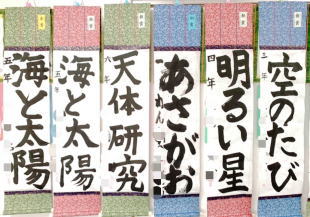 海と太陽
五年
海と太陽
五年
天体研究
六年
あさがお
明るい星
四年
空のたび
三年